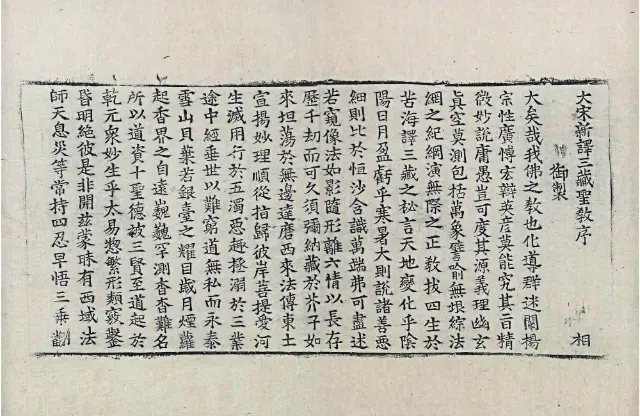 大宋新譯三藏聖教序　相
御製
大矣哉我佛之教也化導群迷闡揚
宗性廣博宏辯英彥莫能究其旨精
微妙說庸愚豈可度其源義理幽玄
真空莫測包括萬象譬喻無垠綜法
網之紀綱演無際之正教拔四生於
苦海譯三藏之秘言天地變化乎陰
陽日月盈虧乎寒暑大則說諸善惡
細則比於恒沙含識萬端弗可盡述
若窺像法如影隨形離六情以長存
歷千劫而可久須彌納藏於芥子如
來坦蕩於無邊達磨西來法傳東土
宣揚妙理順從指歸彼岸菩提愛河
生滅用行於五濁惡趣拯溺於三業
途中經垂世以難窮道無私而永泰
雪山貝葉若銀臺之耀目歲月煙蘿
起香界之自遠巍巍罕測杳杳難名
所以道資十聖德被三賢至道起於
乾元衆妙生乎太易惣繁形類竅鑿
昏明絕彼是非開茲蒙昧有西域法
師天息灾等常持四忍早悟三乘翻